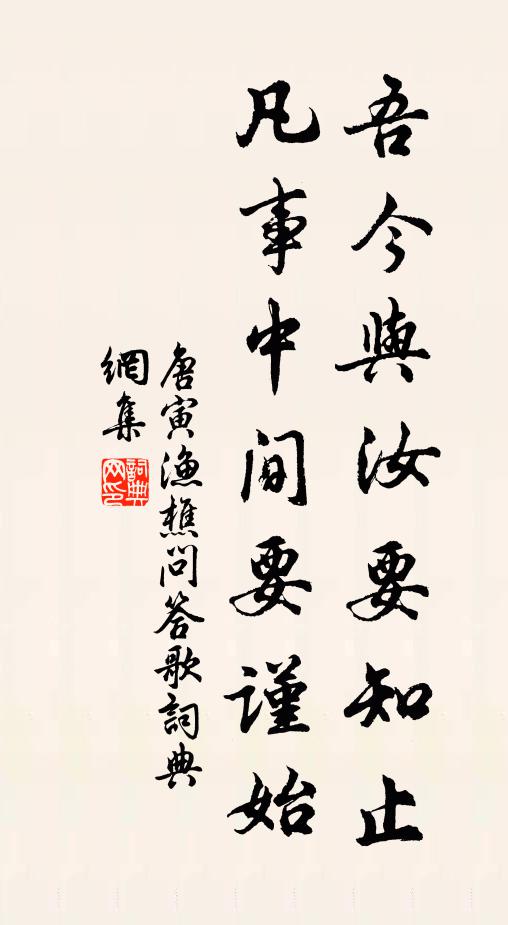 吾今與汝要知止
凡事中间要謹始
唐寅漁樵问答歌詞典
網集
詞典網印